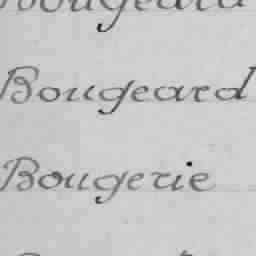 Bougeard
Bougeard
Bougerie